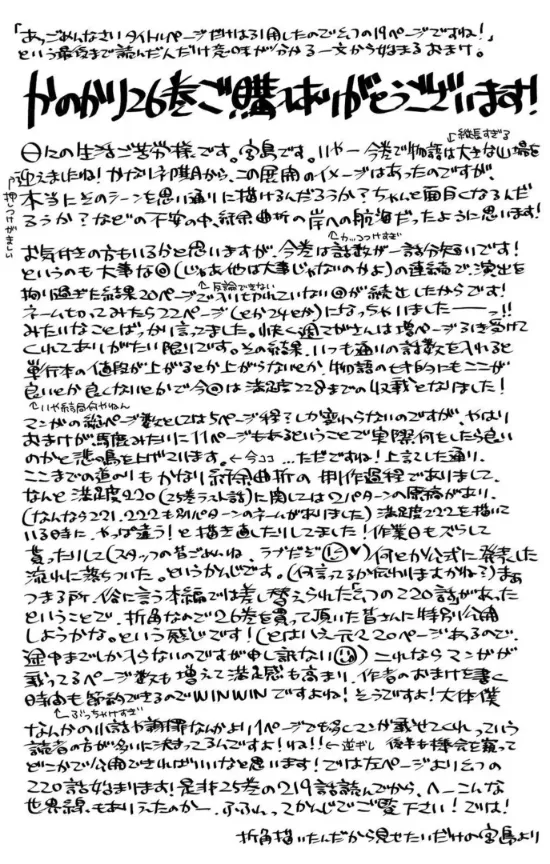 「あっごめんなさいタイトルページだけは引用したのでもう1つの19ページですね!」
という最後まで読んだんだけ意味が分かる一文から始まるおまけ。
かのかり26巻ご購入ありがとうございます!
日々の生活ご苦労様です。宮島です。いやー今巻で物語は大きな山場を
↑縦長すぎる
迎えましたね!かなり初期から、この展開のイメージはあったのですが、
↑押しつけがましい
本当にそのシーンを思い通りに描けるんだろうか?ちゃんと面白くなるんだ
ろうか?などの不安の中、紆余曲折の岸への航海だったように思います!
お気付きの方もいるかと思いますが、今巻は話数が一話分短いです!
↑カッコつけすぎ
というのも大事な回(じゃあ他は大事じゃないのかよ)の連続で、演出を
↑反論できない
拘り過ぎた結果20ページで入り切れていない回が続出したからです!
ネーム切ってみたら22ページ(とか24とか)になっちゃいましたーーっ!!
みたいなことばっか言ってました。快く週マガさんは増ページを引き受けて
くれてありがたい限りです。その結果、いつも通りの話数を入れると
単行本の値段が上がるとか上がらないとか、物語の七割的にもここが
良いとか良くないとかで今回は満足度228までの収載となりました!
↑いや結局何やねん
マンガの総ページ数としては5ページ程?しか変わらないのですが、やはり
おまけが馬鹿みたいに11ページもあるということで実際何をしたら良い
のかと悲鳴を上げています。←今ココ …ただですね!上記した通り、
ここまでの道のりもかなり紆余曲折の制作過程でありまして、
なんと満足度220(25巻ラスト話)に関しては2パターンの原稿があり、
(なんなら221、222も別パターンのネームがありました)満足度222を描いて
いる時に、やっぱ違う!と描き直したりしてました!作業日もズラして
貰ったりして(スタッフの皆ごめんね、ラブだぞ♥)何とか公式に発表した
流れに落ちついた。というかんじです。(何言ってるか伝わりますかね?)まぁ
つまる所、俗に言う本編では差し替えられたもう1つの220話があった
ということで、折角なので26巻を買って頂いた皆さんに特別公開
しようかな。という感じです!(とはいえ元々20ページあるので、
途中までしか入らないのですが申し訳ない)これならマンガが
載ってるページ数も増えて満足感も高まり、作者のおまけを書く
時間も節約できるのでWINWINですよね!そうですよ!大体僕
↑ぶっちゃけすぎ
なんかの小話や謝罪なんかより1ページでも多くマンガ載せてくれっていう
読者の方が多いに決まってるんですよ!ね!!←逆ギレ 後半も機会を窺って
どこかで公開できればいいなと思います!では左ページよりもう1つの
220話始まります!是非25巻の219話読んでから、へーこんな
世界線もありえたのかー、ふふんってかんじでご覧下さい!では!
折角描いたんだから見せたいだけの宮島より